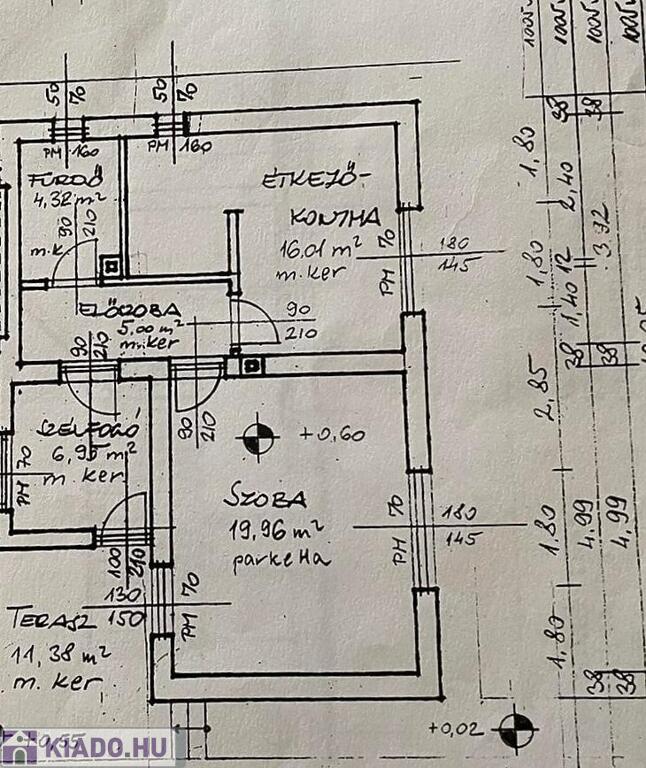 50 70
50 70
PM 160
PM 160
FÜRDŐ
4,32 m²
90
210
m.k.
ÉTKEZŐ-
KONYHA
16,01 m²
m.ker
PM 70
180
145
ELŐSZOBA
5,00 m²
m.ker
90
210
90
210
90
210
SZÉLFOGÓ
6,95 m²
m.ker
PM 70
+0,60
SZOBA
19,96 m²
parketta
PM 70
180
145
100
210
130
150
PM 70
TERASZ
11,38 m²
m.ker
+0,02
+0,55
KIADO.HU
38
38
1,80
2,40
3,92
1,80
12
1,40
38
38
2,85
1,80
4,99
4,99
1,80
38
38